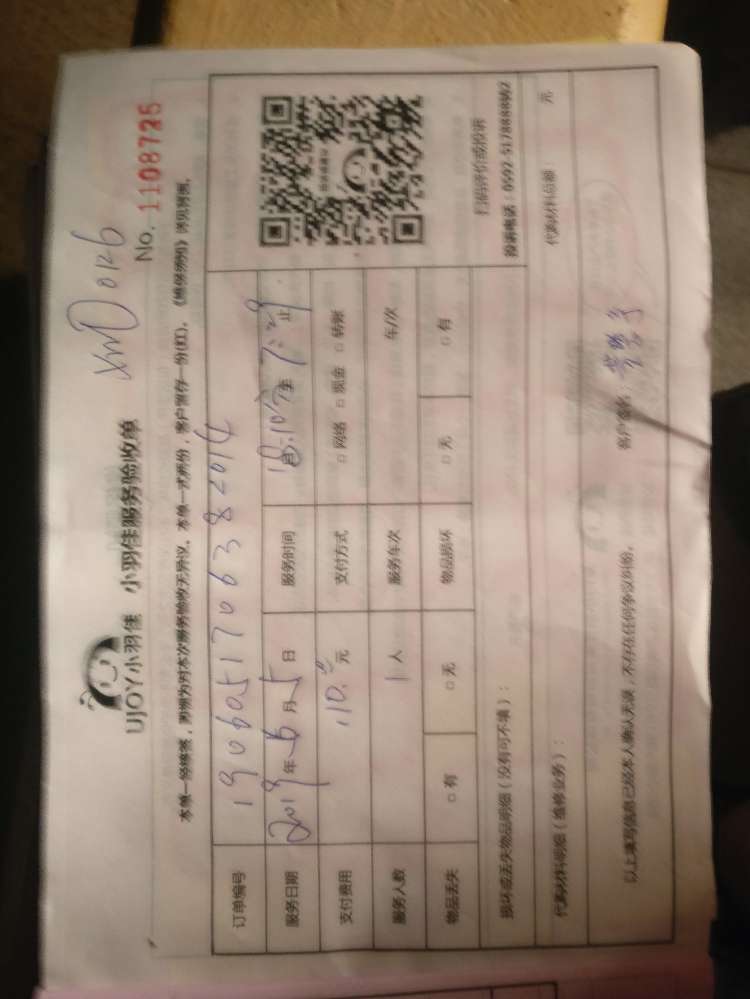 XMD0126
UJOY小羽佳 小羽佳服务验收单
No. 1108725
本单一经签签，则视为对本次服务验收无异议。本单一式两份，客户留存一份(红)。《维保须知》详见背面。
订单编号 1906051706382014
服务日期 2019年6月5日 服务时间 止
支付费用 110.元 支付方式 □网络 □现金 □转账
服务人数 1人 服务车次 车/次
物品丢失 □有 □无 物品损坏 □无 □有
扫码评价或投诉
投诉电话：0592-5178888转2
损坏或丢失物品明细（没有可不填）：
代购材料明细（维修业务）： 代购材料总额： 元
以上填写信息已经本人确认无误，不存在任何争议纠纷。 客户签名：